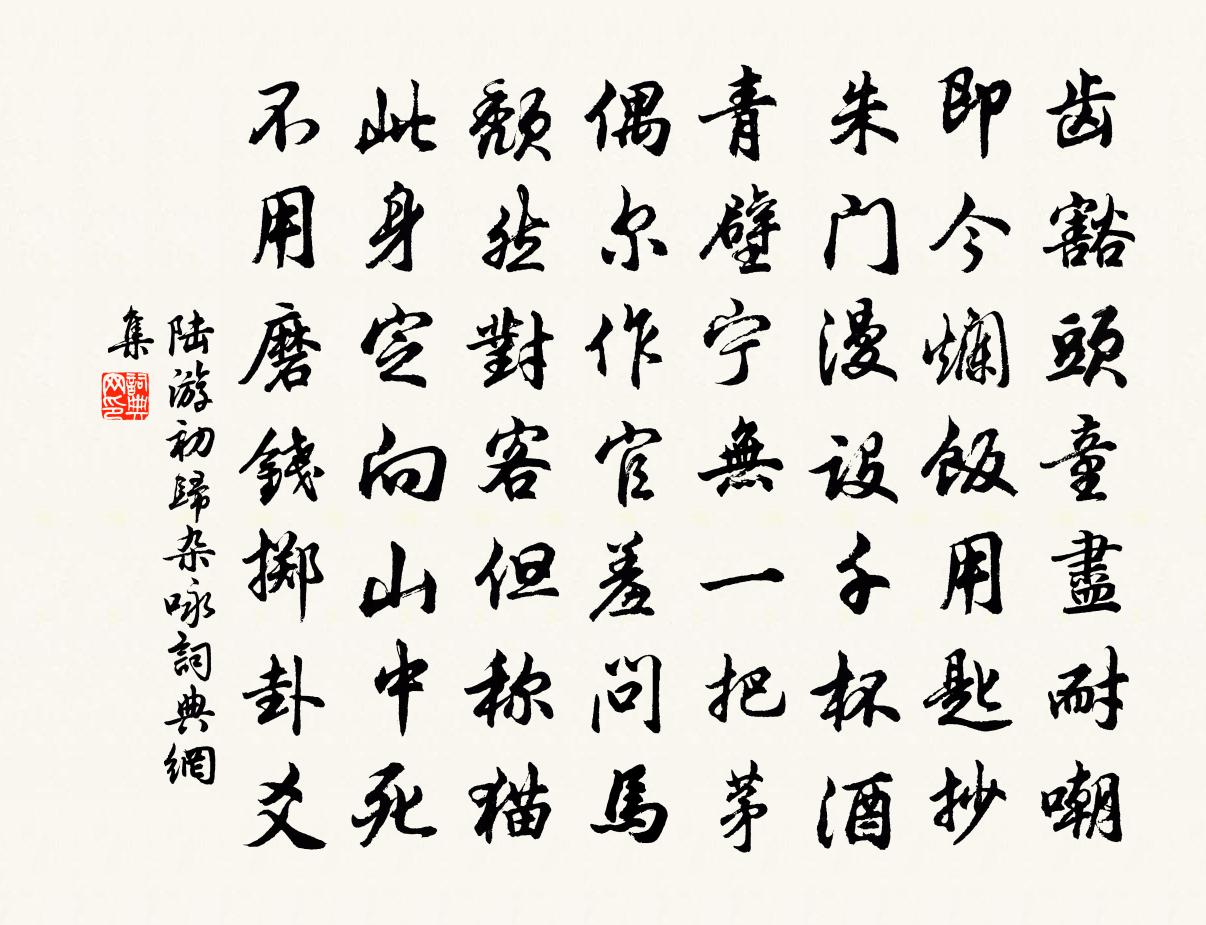 齿豁頭童盡耐嘲
即今爛飯用匙抄
朱门漫设千杯酒
青壁宁無一把茅
偶尔作官羞问馬
颓然對客但称猫
此身定向山中死
不用磨錢掷卦爻
陆游初歸杂咏詞典網
集
詞典网印